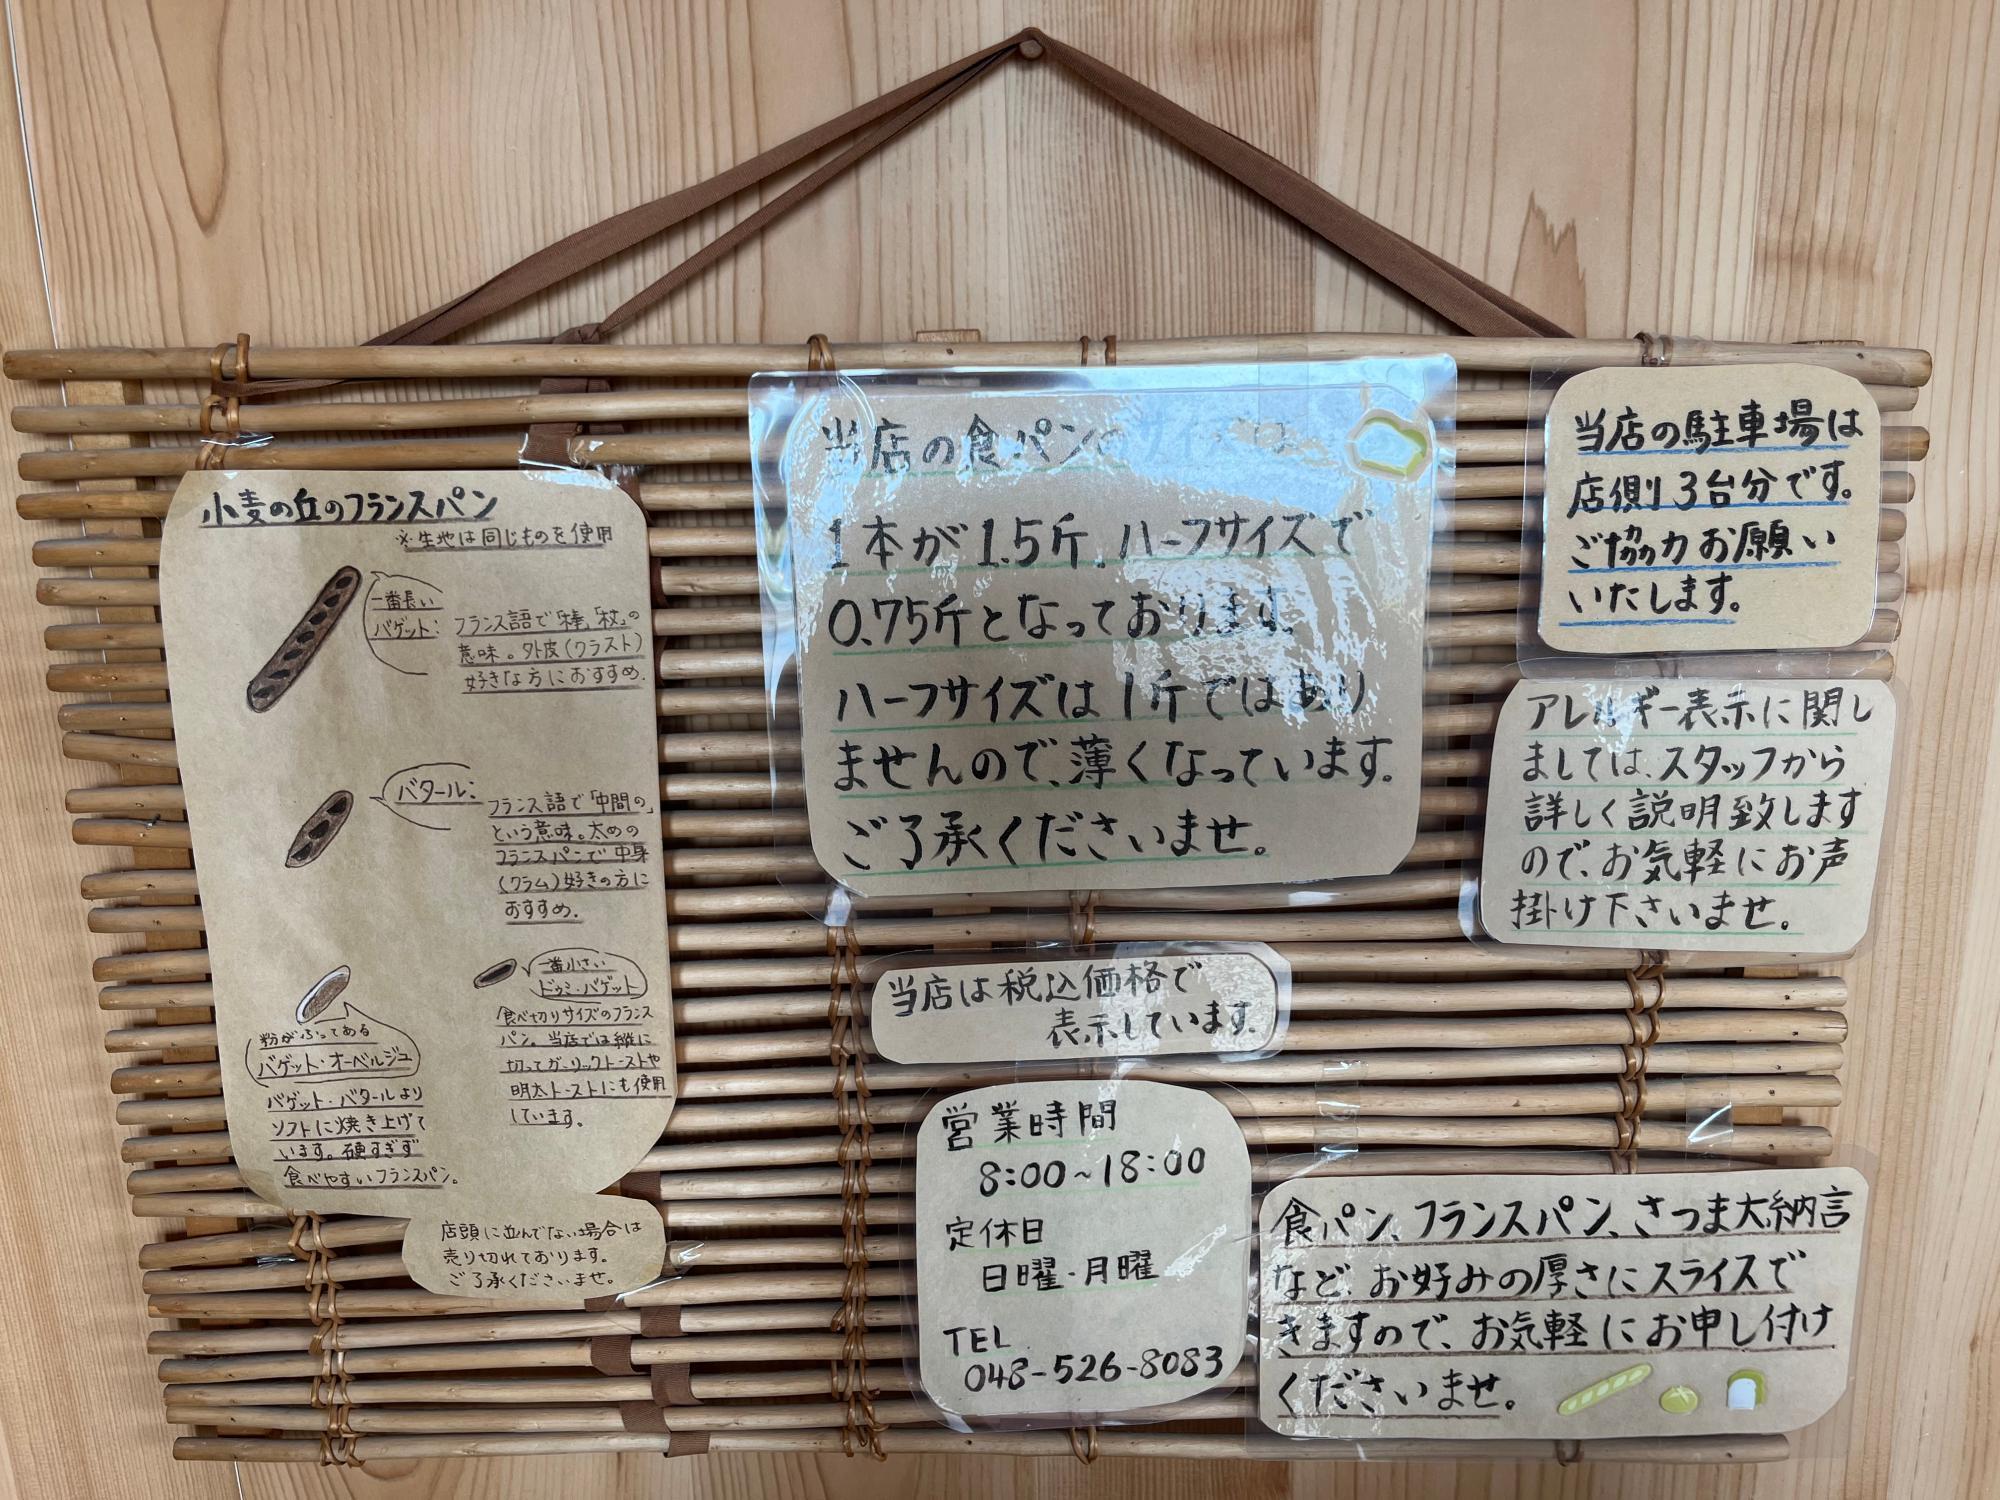 小麦の丘のフランスパン
※生地は同じものを使用
一番長い
バゲット:
フランス語で「棒」「杖」の
意味。外皮(クラスト)
好きな方におすすめ.
バタール:
フランス語で「中間の」
という意味。太めの
フランスパンで中身
(クラム)好きの方に
おすすめ.
粉がふってある
バゲット・オーベルジュ
バゲット・バタールより
ソフトに焼き上げて
います。硬すぎず
食べやすいフランスパン。
一番小さい
ドゥミ・バゲット
食べ切りサイズのフランス
パン。当店では縦に
切ってガーリックトーストや
明太トーストにも使用
しています。
店頭に並んでない場合は
売り切れております。
ご了承くださいませ。
当店の食パンのサイズは
1本が1.5斤、ハーフサイズで
0.75斤となっております。
ハーフサイズは1斤ではあり
ませんので、薄くなっています。
ご了承くださいませ。
当店は税込価格で
表示しています。
営業時間
8:00~18:00
定休日
日曜・月曜
TEL
048-526-8083
当店の駐車場は
店側3台分です。
ご協力お願い
いたします。
アレルギー表示に関し
ましては、スタッフから
詳しく説明致します
ので、お気軽にお声
掛け下さいませ。
食パン、フランスパン、さつま大納言
など、お好みの厚さにスライスで
きますので、お気軽にお申し付け
くださいませ。